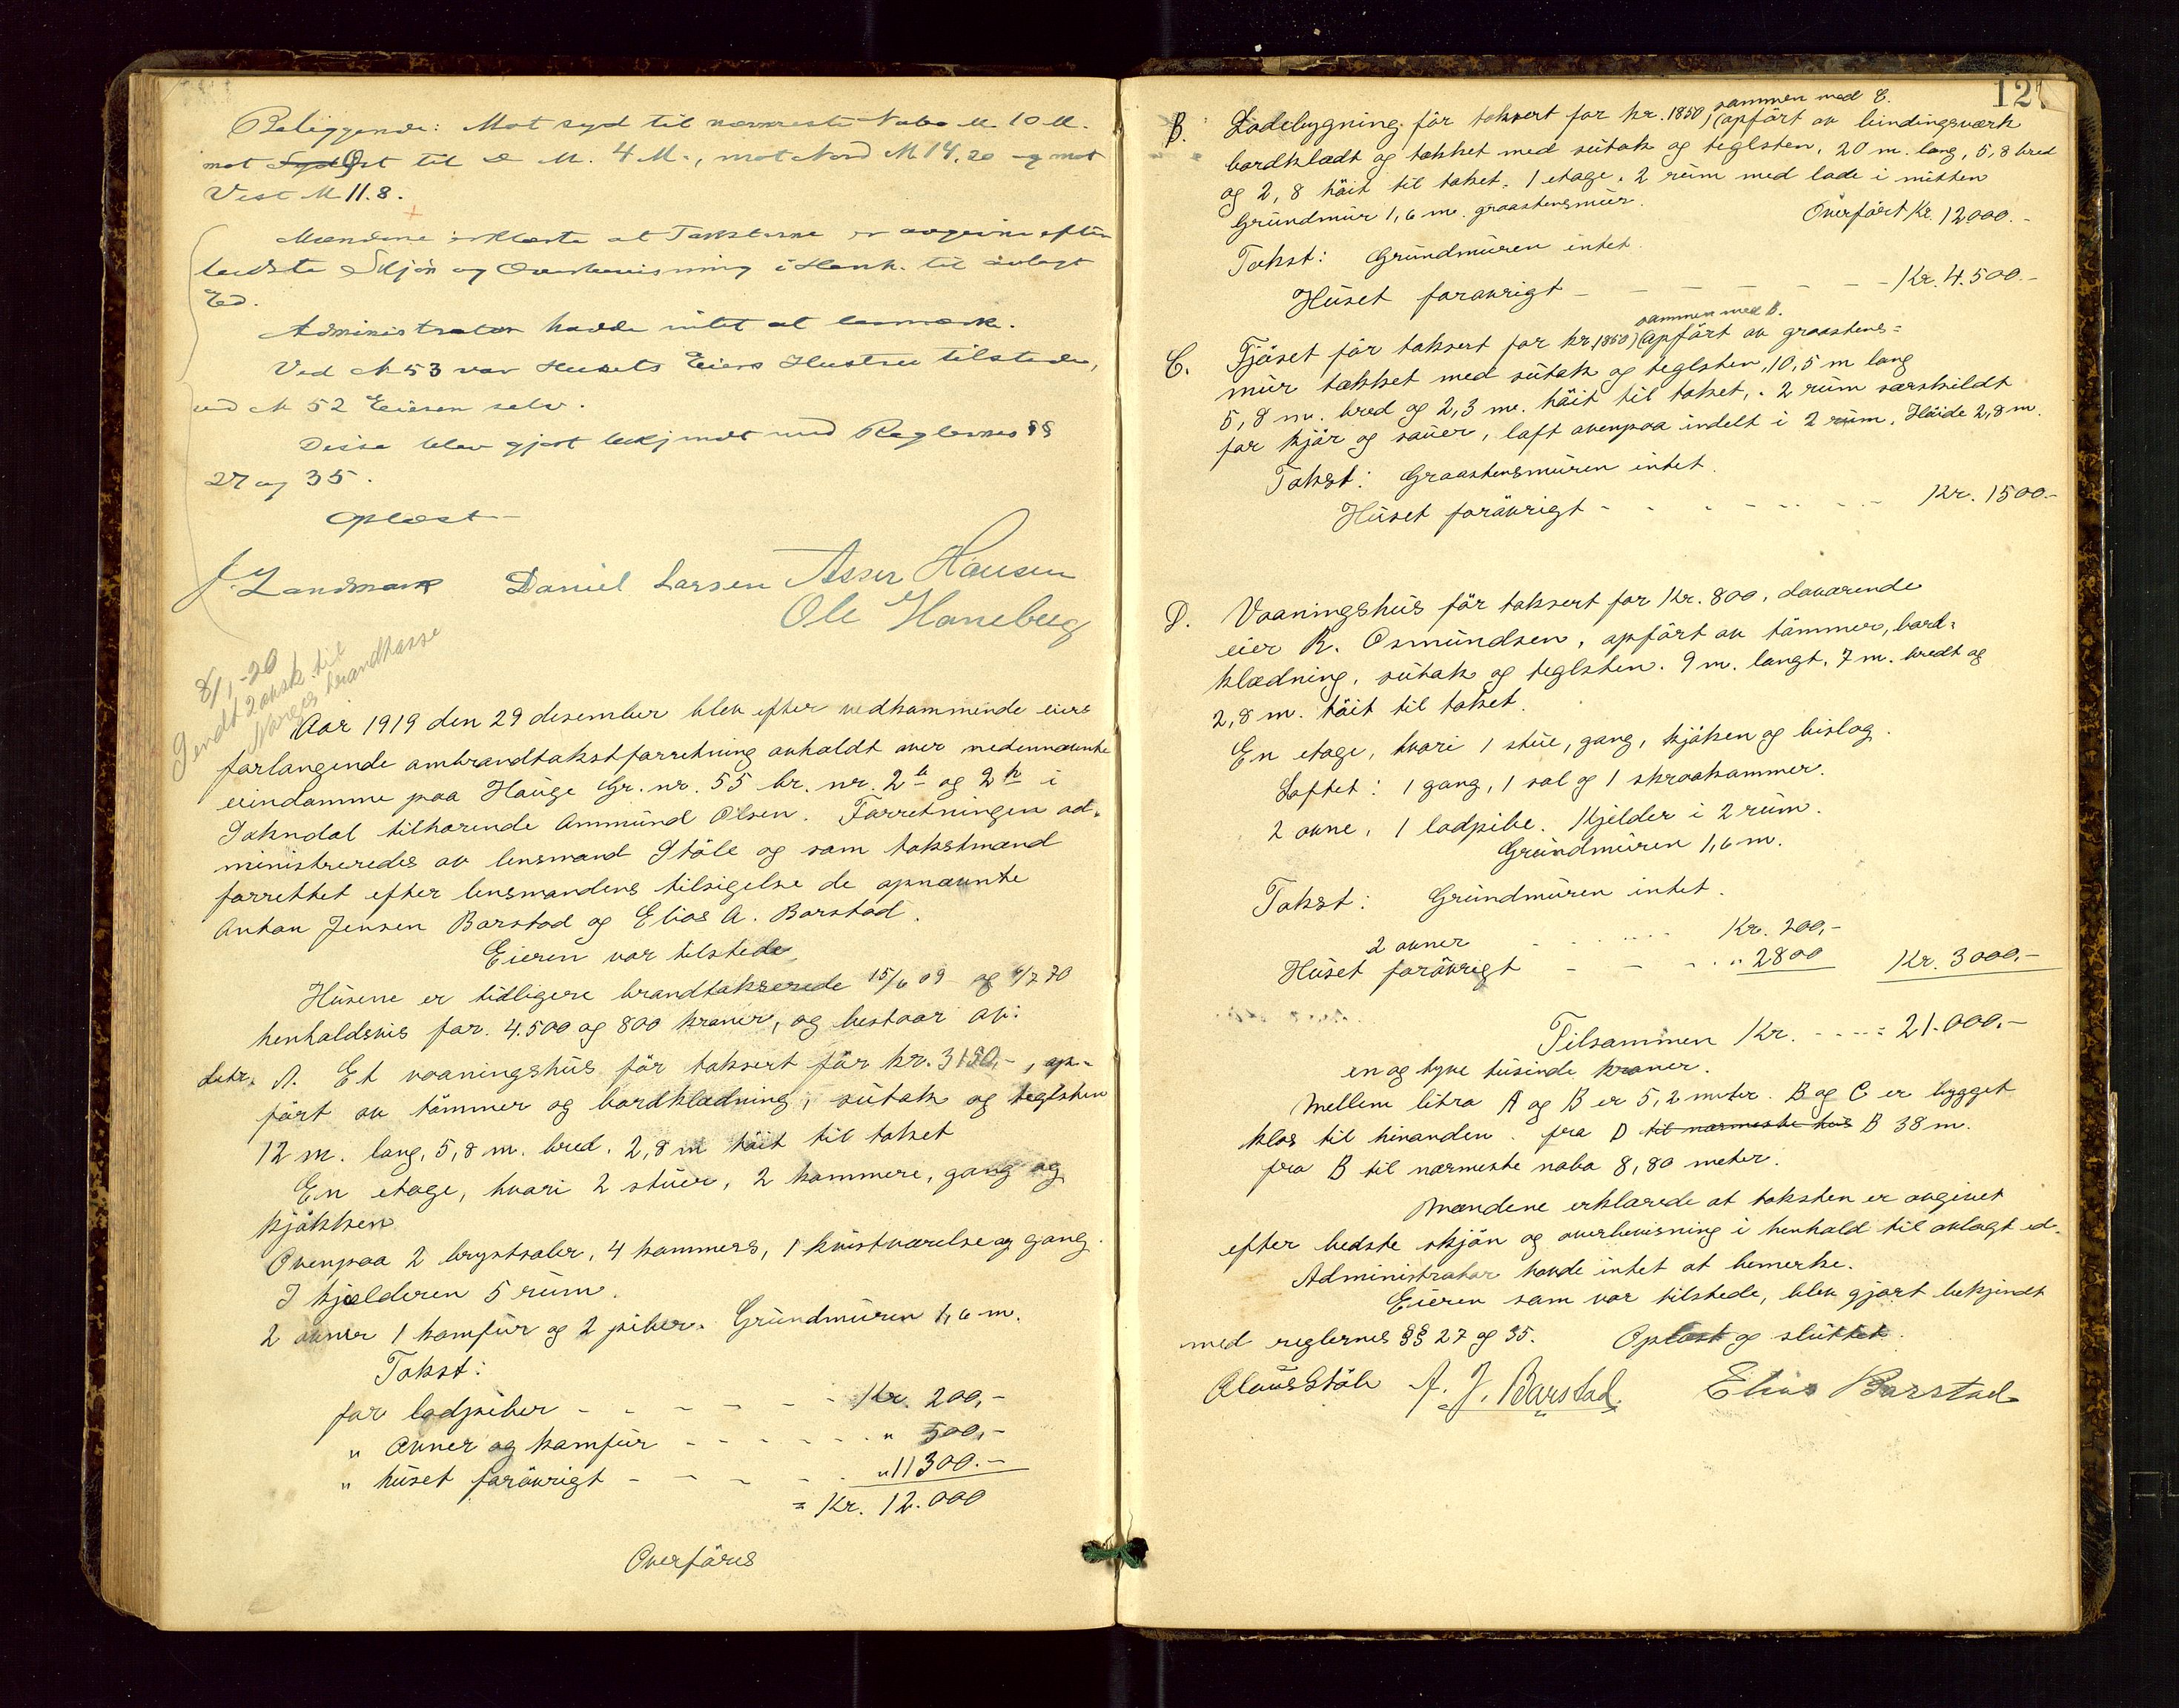 Beliggende: Mot syd til nærmeste Nabo M 10 M.
mot Syd Øst til D M. 4 M., mot Nord M 14,20 og mot
Vest M 11.8.
Mændene erklærte at Taksterne er avgivne efter
bedste Skjøn og Overbevisning i Henh. til avlagt
Ed.
Administrator hadde intet at bemærke.
Ved M 53 var Husets Eiers Hustru tilstede,
ved M 52 Eieren selv.
Disse blev gjort bekjendt med Reglernes §§
27 og 35.
Oplæst
J. Landmark Daniel Larsen Asser Hansen
Ole Haneberg
8/1-20
Sendt 2 avsk. til
Norges brandkasse
Aar 1919 den 29 desember blev efter vedkommende eiers
forlangende ombrandtakstforretning avholdt over nedennævnte
eiindomme paa Hauge Gr. nr. 55 br. nr. 2 og 2 i
Sokndal tilhørende Ammund Olsen. Forretningen ad-
ministreredes av lensmand Ståle og som takstmænd
forrettet efter lensmandens tilsigelse de opnævnte
Anton Jensen Barstad og Elias A. Barstad.
Eieren var tilstede
Husene er tidligere brandtakserede 15/6 09 og 4/7 70
henholdsvis for 4.500 og 800 kroner, og bestaar av:
Litr. A. Et vaaningshus før taksert før kr. 3150,-, op-
ført av tømmer og bordklædning, sutak og teglsten
12 m. lang, 5,8 m. bred. 2,8 m høit til taket
En etage, hvori 2 stuer, 2 kammere, gang og
kjøkken
Ovenpaa 2 brystsaler, 4 kammers, 1 kvistværelse og gang.
I kjælderen 5 rum.
2 ovner 1 komfur og 2 piber. Grundmuren 1,6 m.
Takst:
for lodpiber - - - - - - Kr. 200,-
" Ovner og komfur - - - - - - " 500,-
" huset forøvrigt - - - - - " 11300.-
= Kr. 12.000
Overføres
127
B. Ladebygning før taksert for kr. 1850) sammen med C. (opført av bindingsværk
bordklædt og tækket med sutak og teglsten, 20 m. lang, 5,8 bred
og 2,8 høit til taket. 1 etage. 2 rum med lade i mitten
Grundmur 1,6 m. graastensmur.
Overført Kr. 12000.-
Takst: Grundmuren intet.
Huset forøvrigt - - - - - - - Kr. 4.500.-
C. Fjøset før taksert for kr. 1850) sammen med B. (opført av graastens=
mur tækket med sutak og teglsten, 10,5 m lang
5,8 m. bred og 2,3 m. høit til taket, 2 rum særskildt
for kjør og sauer, loft ovenpaa indelt i 2 rum. Høide 2,8 m.
Takst: Graastensmuren intet.
Huset forøvrigt - - - - - - - Kr. 1500.-
D. Vaaningshus før taksert for Kr. 800, daværende
eier R. Osmundsen, opført av tømmer, bord=
klædning, sutak og teglsten. 9 m. langt, 7 m. bredt og
2,8 m. høit til taket.
En etage, hvori 1 stue, gang, kjøken og bislag.
Loftet: 1 gang, 1 sal og 1 skraakammer.
2 ovne, 1 lodpibe. Kjelder i 2 rum.
Grundmuren 1,6 m.
Takst: Grundmuren intet.
2 ovner - - - - - Kr. 200,-
Huset forøvrigt - - - - - " 2800 Kr. 3000,-
Tilsammen Kr. ----= 21.000.-
en og tyve tusinde kroner.
Mellem litra A og B er 5,2 meter. B og C er bygget
klos til hinanden. fra D til nærmeste hus B 38 m.
fra B til nærmeste nabo 8,80 meter.
Mændene erklærede at taksten er avgivet
efter bedste skjøn og overbevisning i henhold til avlagt ed.
Administrator havde intet at bemerke.
Eieren som var tilstede, blev gjort bekjendt
med reglernes §§ 27 og 35. Oplæst og sluttet.
Olaus Ståle A. J. Barstad Elias Barstad